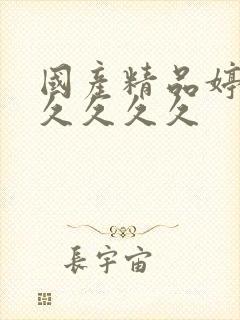 國産精品婷
久久久久
長宇宙